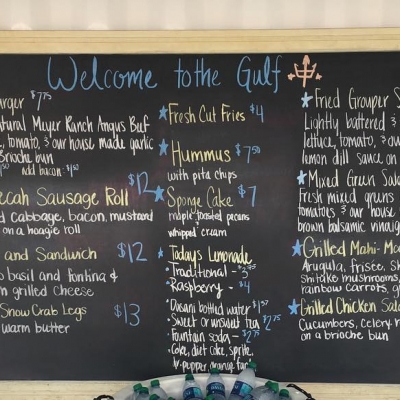 Welcome to the Gulf
urger $7.75
atural Meyer Ranch Angus Beef
e, tomato, & our house made garlic
Brioche bun
add bacon
ecah Sausage Roll $12
d cabbage, bacon, mustard
on a hoagie roll
and Sandwich $12
o basil and fontina &
n grilled cheese
Snow Crab Legs $13
warm butter
Fresh Cut Fries $4
Hummus $7.50
with pita chips
Sponge Cake $7
maple toasted pecans
whipped cream
Todays Lemonade
Traditional - $3.75
Raspberry - $4
Dasani bottled water $1.50
Sweet or unsweet tea $2.75
Fountain soda - $2.75
Coke, diet coke, sprite,
dr. pepper, orange fan
Fried Grouper S
Lightly battered &
lettuce, tomato, & ou
lemon dill sauce, on
Mixed Green Sala
Fresh mixed greens
tomatoes & our house
brown balsamic vinaig
Grilled Mahi-Ma
Arugula, frisée, sk
shitake mushrooms,
rainbow carrots, gi
Grilled Chicken Sala
Cucumbers, celery, r
on a brioche bun